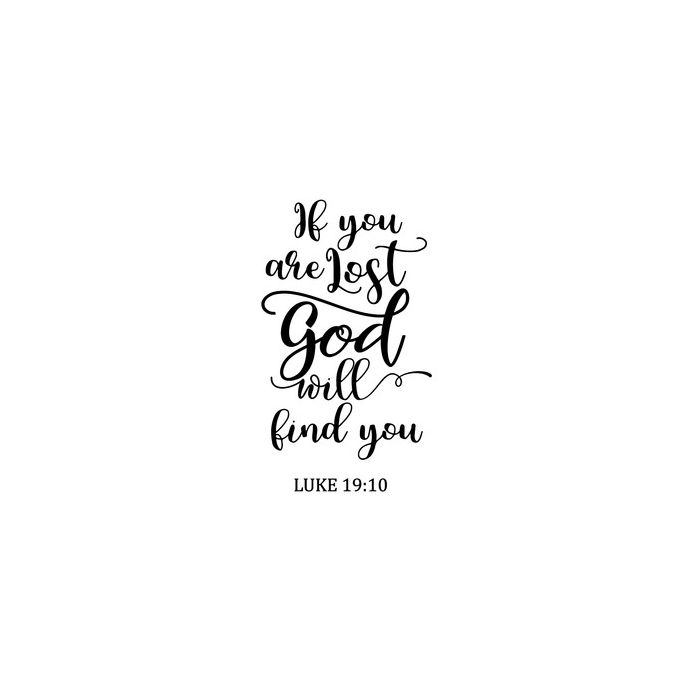 If you
are Lost
God
will
find you
LUKE 19:10